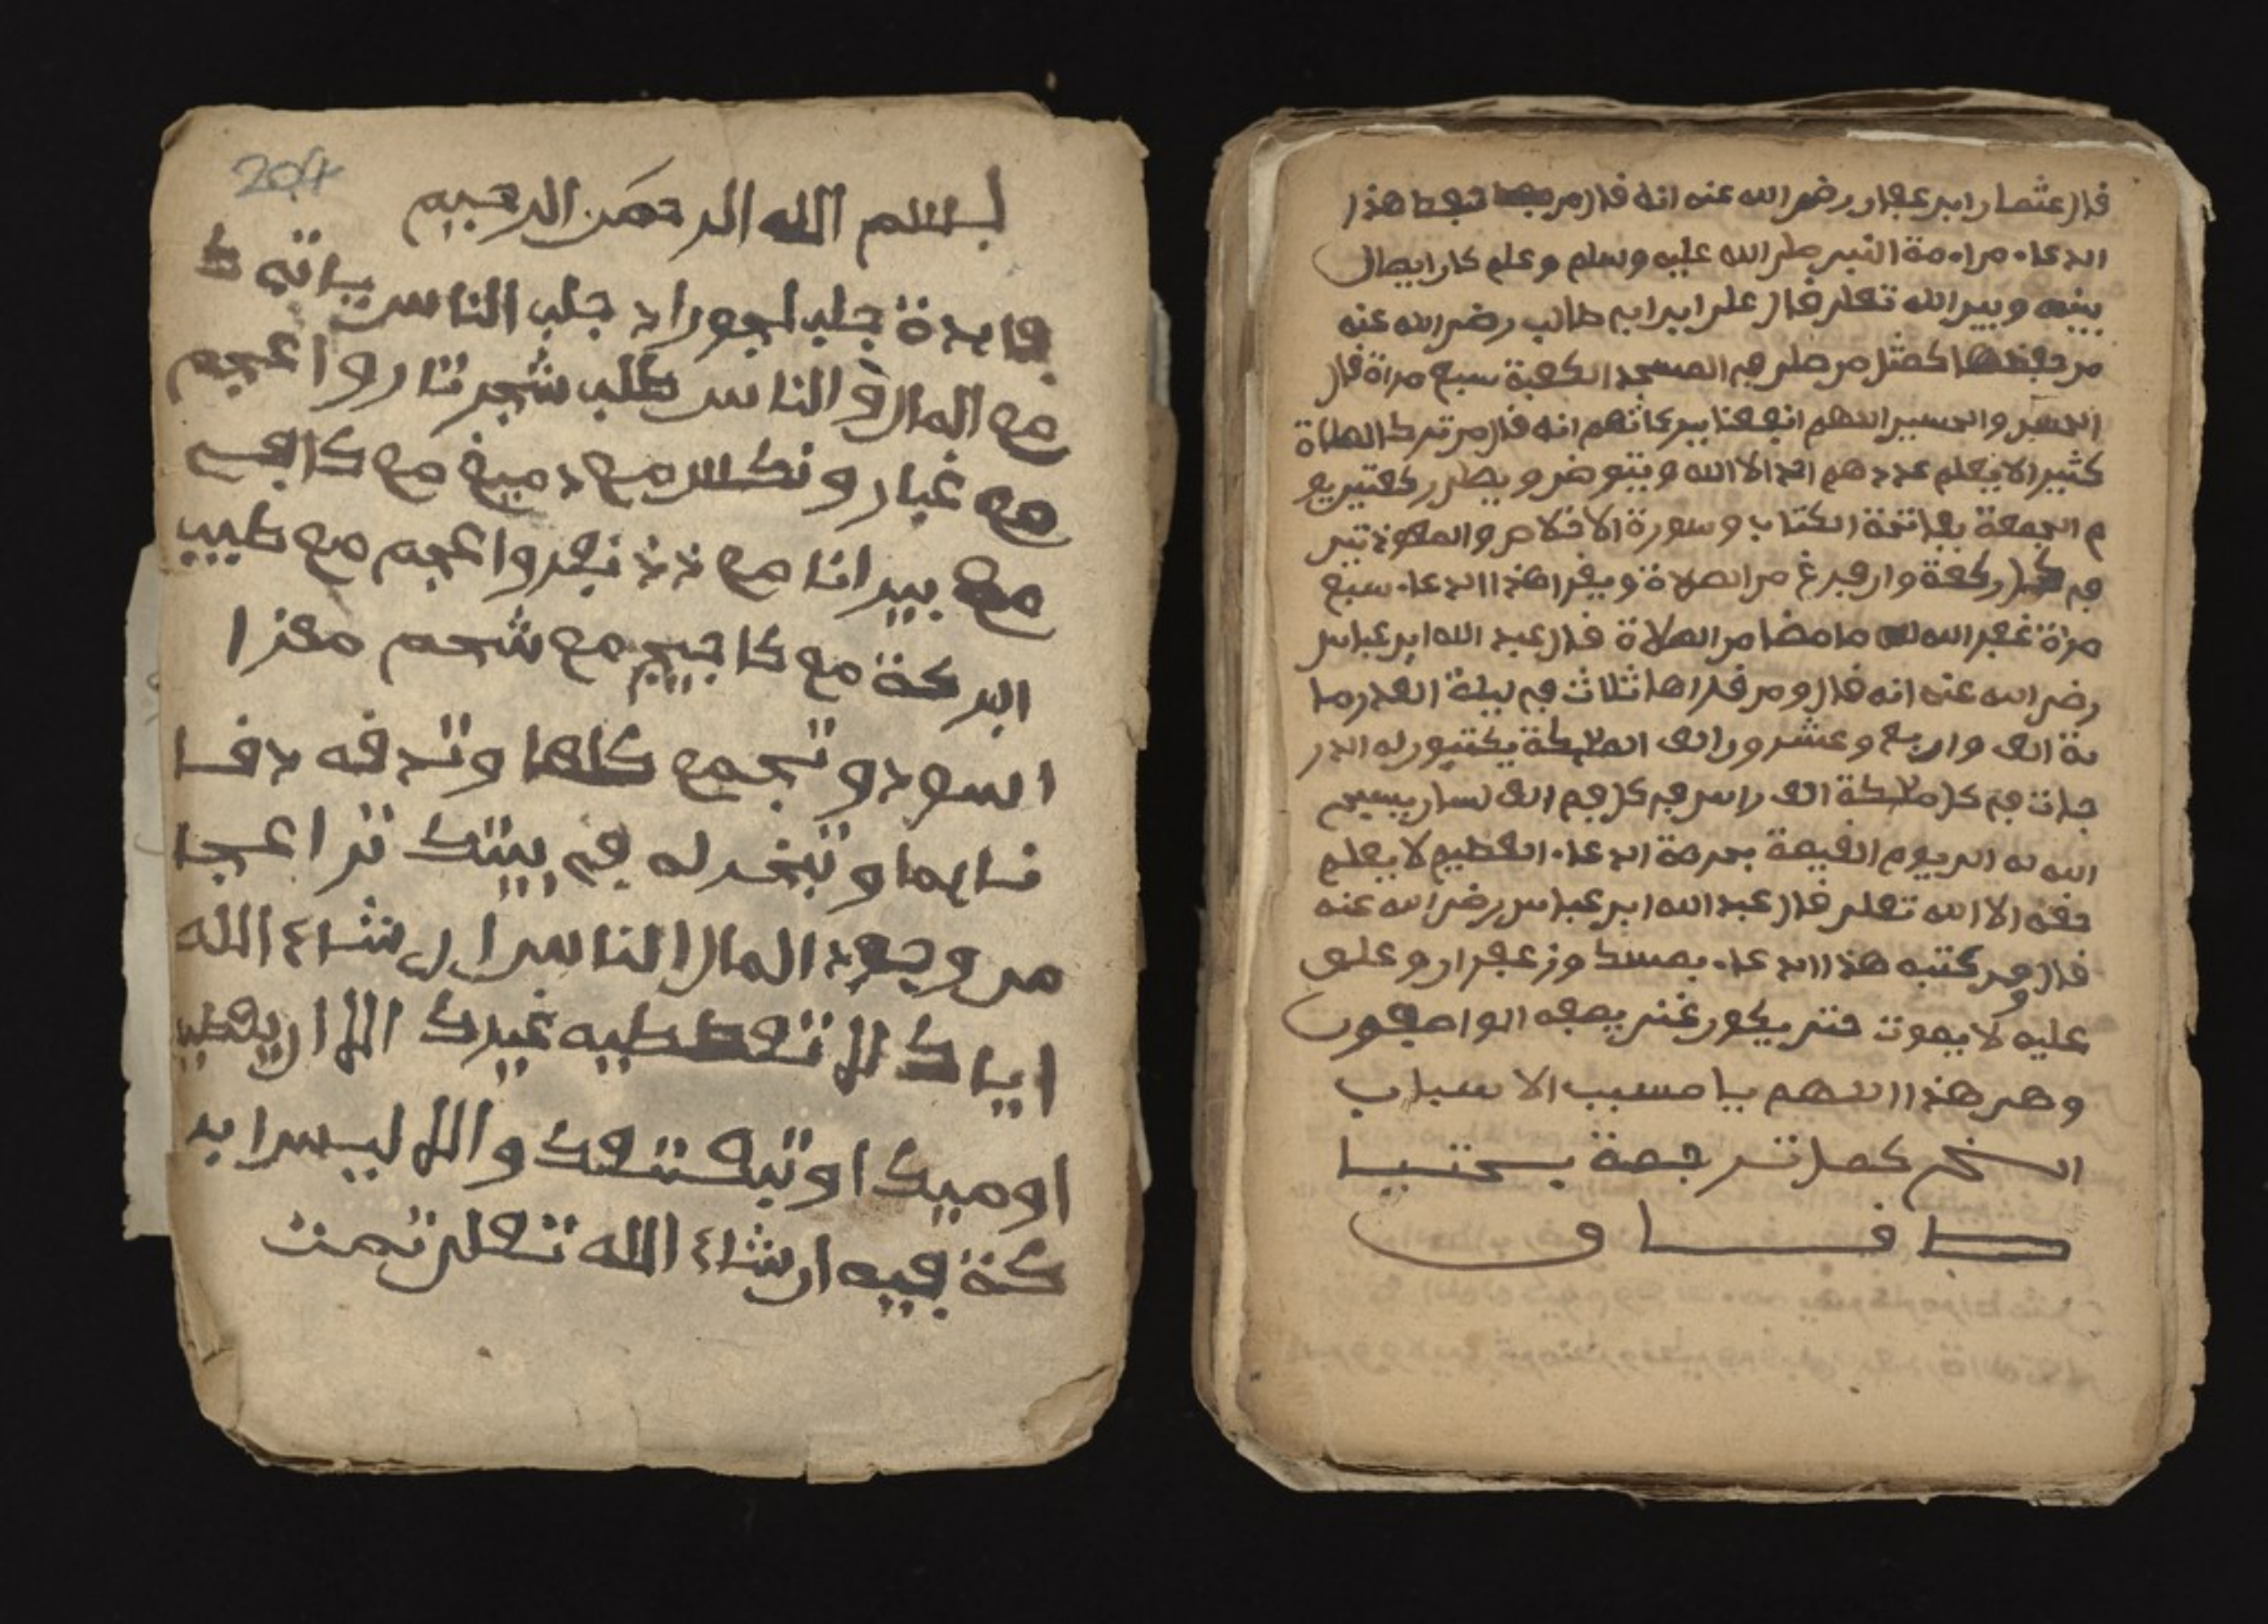 قال عثمان ابن عفان رضي الله عنه انه قال من حفظ هذا
الدعاء من امة النبي صلى الله عليه وسلم وعلم كان ايصال
بينه وبين الله تعلى قال علي ابن ابي طالب رضي الله عنه
من حفظها كمثل من صلى في المسجد الكعبة سبع مراة قال
الحسن والحسين اللهم انفعنا ببركاتهم انه قال من ترك الصلاة
كثيرا لا يعلم عددهم احد الا الله ويتوضى ويصلى ركعتين يو
م الجمعة بفاتحة الكتاب وسورة الاخلاص والمعوذتين
في كل ركعة وان فرغ من الصلاة ويقرا هذا الدعاء سبع
مراة غفر الله له ما مضا من الصلاة قال عبد الله ابن عباس
رضي الله عنه انه قال ومن قراها ثلاث في ليلة القدر ما
ية الف واربع وعشرون الف الملىكة يكتبون له الدر
جات في كل ملىكة الف راس في كل فم الف لسان يسبح
الله له الى يوم القيمة بحرمة الدعاء العظيم لا يعلم
حقه الا الله تعلى قال عبد الله ابن عباس رضي الله عنه
قال من كتبه هذا الدعاء بمسك وزعفران وعلق
عليه لا يموت حتى يكون غني يصفه الواصفون
وهي هذا اللهم يا مسبب الاسباب
الخ كمل ترجمة
204
بسم الله الرحمن الرحيم
فايدة جلب لجور اد جلب الناس ياته ك
مع المال والناس طلب شجر تارو اعجم
مع غبار ونكس مع دميغ مع كافع
مع بيرانا مع نفرو اعجم مع طيب
البركة مع كاجيج مع شحم معزا
اسود وتجمع كلها وتدقه دقا
ناعما وتبخر له في بيتك ترا عجبا
من وجود المال الناس ان شاء الله
اياك لا تعططيه غيرك الا ان يعطيك
اوميك او والا ليس ابر
كة فيه ان شاء الله تعلى تمت